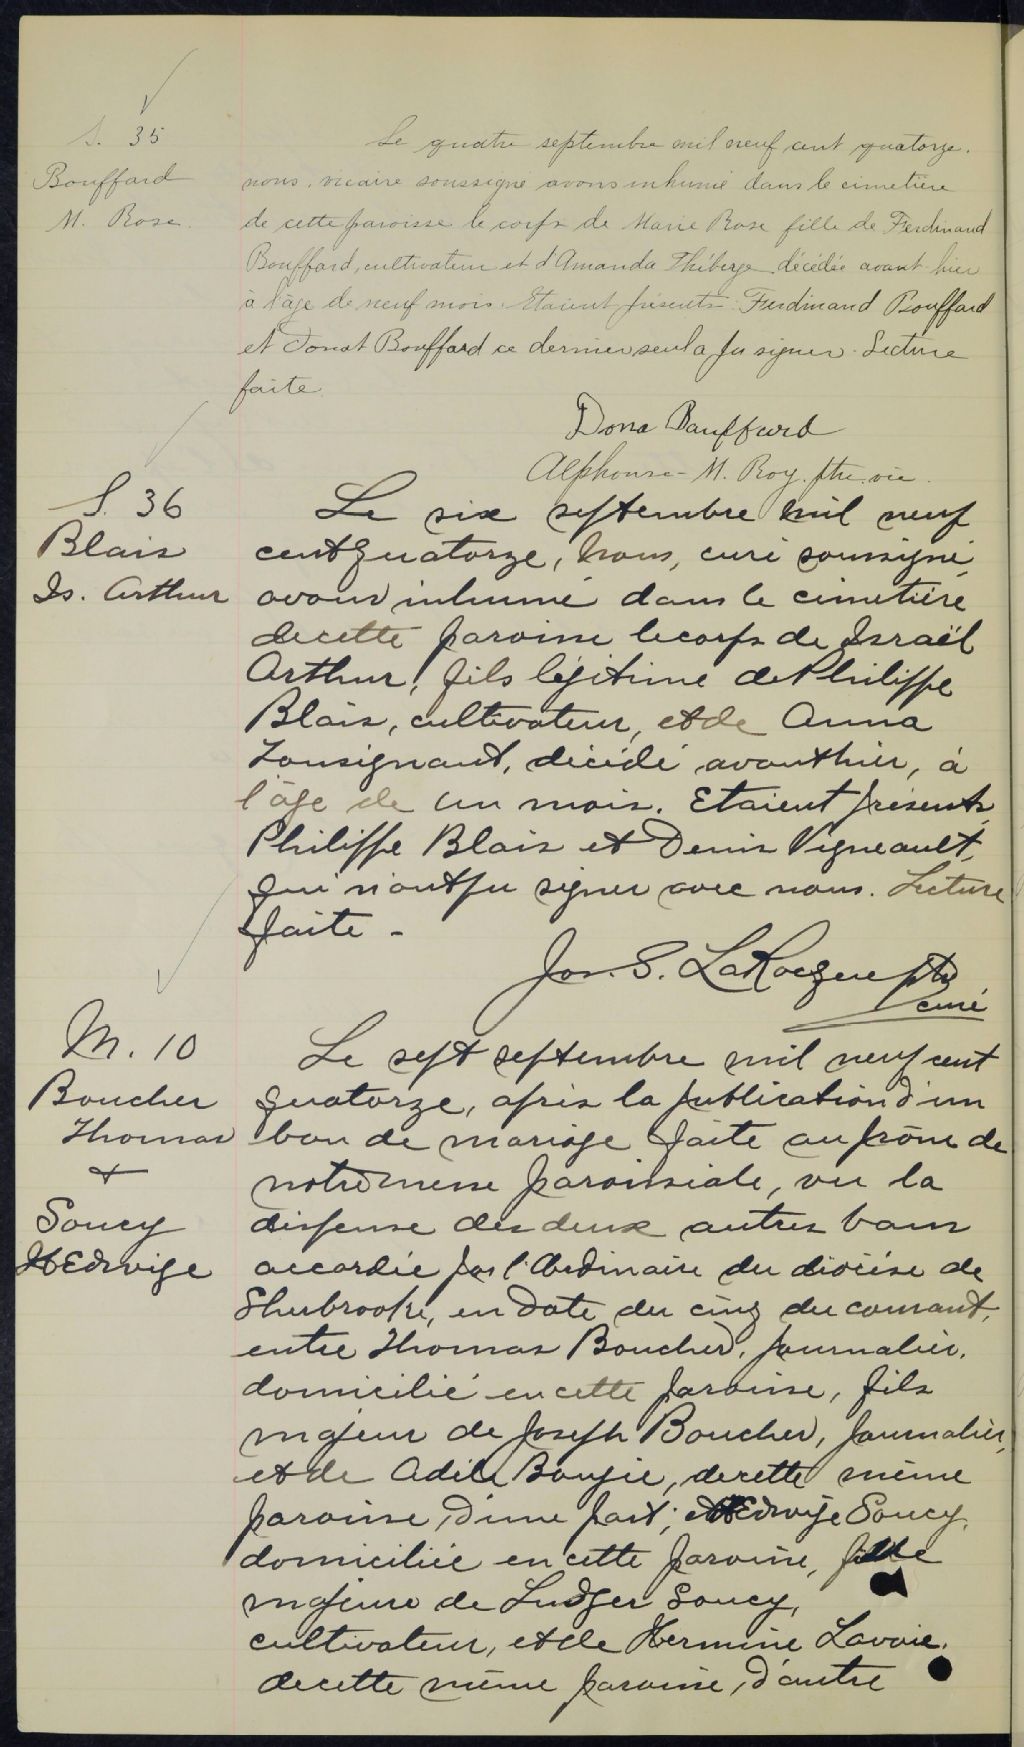 S. 35
Bouffard
M. Rose.
Le quatre septembre mil neuf cent quatorze.
nous, vicaire soussigné avons inhumé dans le cimetière
de cette paroisse le corps de Marie Rose fille de Ferdinand
Bouffard, cultivateur et d'Amanda Théberge décédée avant hier
à l'âge de neuf mois. Etaient présents: Ferdinand Bouffard
et Donat Bouffard ce dernier seul a pu signer. Lecture
faite.
Dona Bauffard
Alphonse-M. Roy. ptre. vic.
S. 36
Blais
Is. Arthur
Le six septembre mil neuf
cent quatorze, nous, curé soussigné,
avons inhumé dans le cimetière
de cette paroisse le corps de Israël
Arthur, fils légitime de Philippe
Blais, cultivateur, et de Anna
Tousignant, décédé avanthier, à
l'âge de un mois. Etaient présents
Philippe Blais et Denis Vigneault,
qui n'ont pu signer avec nous. Lecture
faite -
Jos. S. LaRocque ptre
curé
M. 10
Boucher
Thomas
+
Soucy
HEdwige
Le sept septembre mil neuf cent
quatorze, après la publication d'un
ban de mariage faite au prône de
notre messe paroissiale, vu la
dispense des deux autres bans
accordée par l'Ordinaire du diocèse de
Sherbrooke, en date du cinq du courant,
entre Thomas Boucher, journalier,
domicilié en cette paroisse, fils
majeur de Joseph Boucher, journalier,
et de Adèle Bougie, de cette même
paroisse, d'une part; et HEdwige Soucy,
domiciliée en cette paroisse, fille
majeure de Ludger Soucy,
cultivateur, et de Hermine Lavoie,
de cette même paroisse, d'autre